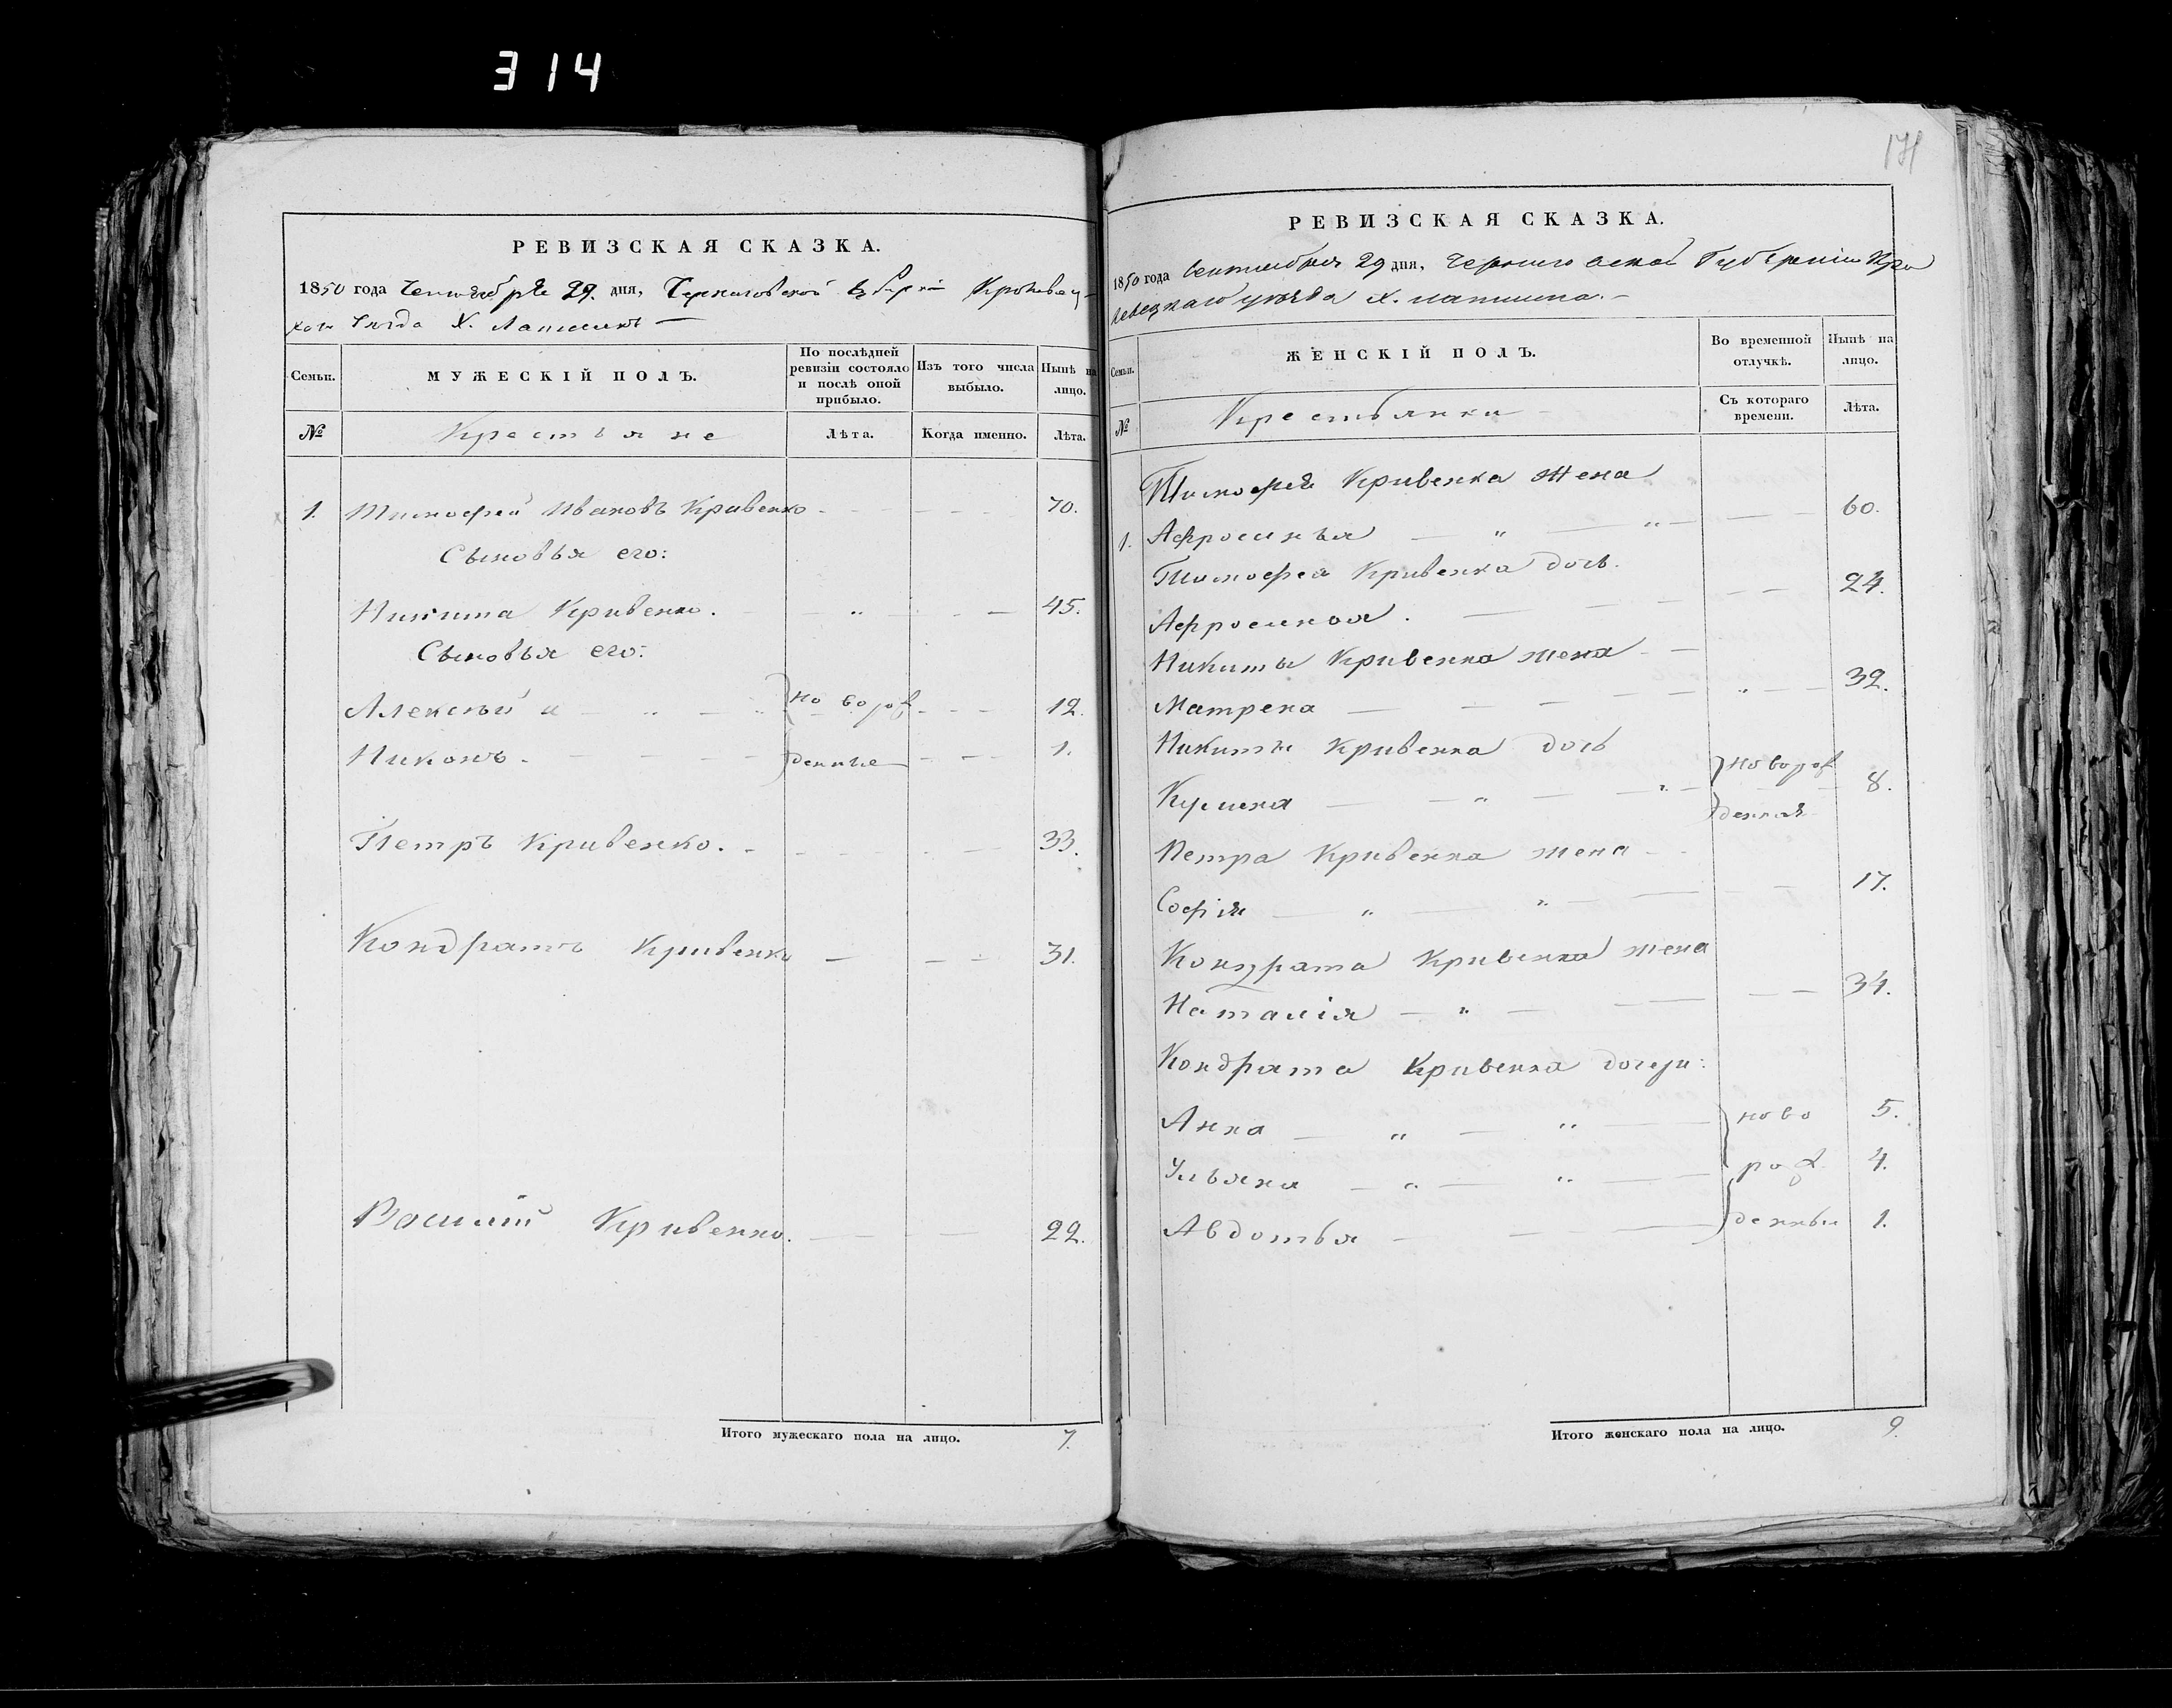 314
РЕВИЗСКАЯ СКАЗКА.
1850 года Сентября 29. дня, Черниговской Губерніи Кролевец-
каго Уѣзда Х. Лапшина —
Семьи.
МУЖЕСКІЙ ПОЛЪ.
По послѣдней ревизіи состояло и послѣ оной прибыло.
Изъ того числа выбыло.
Нынѣ на лицо.
№
Крестьяне
Лѣта.
Когда именно.
Лѣта.
1. Тимофей Ивановъ Кривенко 70.
Сыновья его:
Никита Кривенко. 45.
Сыновья его:
Алексѣй и новорож 12.
Никонъ. денные 1.
Петръ Кривенко. 33.
Кондратъ Кривенко 31.
Василій Кривенко. 22.
Итого мужескаго пола на лицо. 7.
171
РЕВИЗСКАЯ СКАЗКА.
1850 года Сентября 29 дня, Черниговской Губерніи Кро
левецкаго уѣзда х. лапшина. —
Семьи.
ЖЕНСКІЙ ПОЛЪ.
Во временной отлучкѣ.
Нынѣ на лицо.
№
Крестьянки
Съ котораго времени.
Лѣта.
Тимофея Кривенка Жена
1. Афросинья 60.
Тимофея Кривенка дочь.
Афросинья. 24.
Никиты Кривенка жена
Матрена 32.
Никиты Кривенка дочь
новорож
8.
денная
Петра Кривенка жена
Софія 17.
Кондрата Кривенка жена
Наталія 34.
Кондрата Кривенка дочери:
Анна ново 5.
Ульяна рож 4.
Авдотья денныя 1.
Итого женскаго пола на лицо. 9.